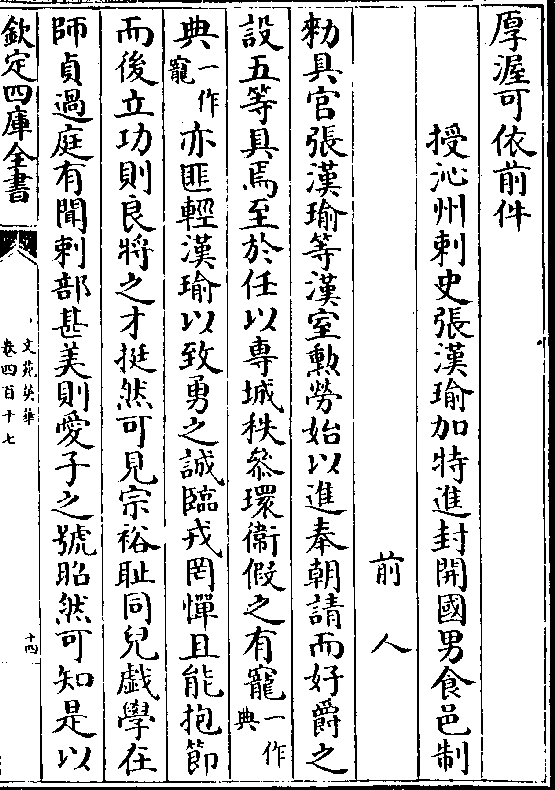 厚渥可依前件
授沁州刺史張漢瑜加特進封開國男食邑制
前人
勑具官張漢瑜等漢室勲勞始以進奉朝請而好爵之
設五等具焉至於任以専城秩叅環衞假之有寵一作典
典一作寵亦匪輕漢瑜以致勇之誠臨戎罔憚且能抱節
而後立功則良將之才挺然可見宗裕耻同兒戲學在
師貞過庭有聞剌部甚美則愛子之號昭然可知是以
欽定四庫全書
文苑英華
卷四百十七
十四